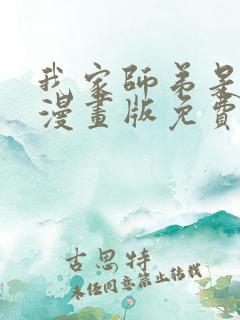 我家師弟是
漫畫版免費
古思特
未經同意禁止轉載